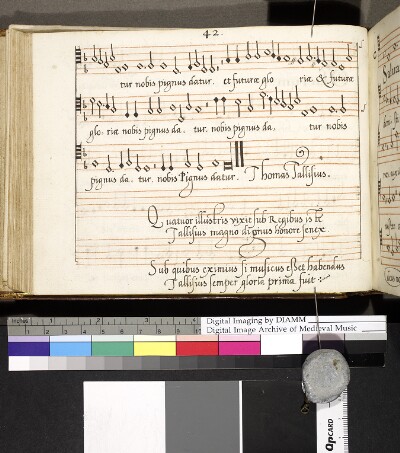 42
tur nobis pignus datur. et futuræ glo riæ & futuræ
glo. riæ nobis pignus da. tur. nobis pignus da, tur nobis
pignus da. tur. nobis Pignus datur. Thomas Tallisius.
Quatuor illustris vixit sub Regibus iste
Tallisius magno dignus honore senex.
Sub quibus eximius si musicus esset habendus
Tallisius semper gloria prima fuit
Digital Imaging by DIAMM
Digital Image Archive of Medieval Music
inches 1
1 2 3 4 5 6 7 8
QPCARD